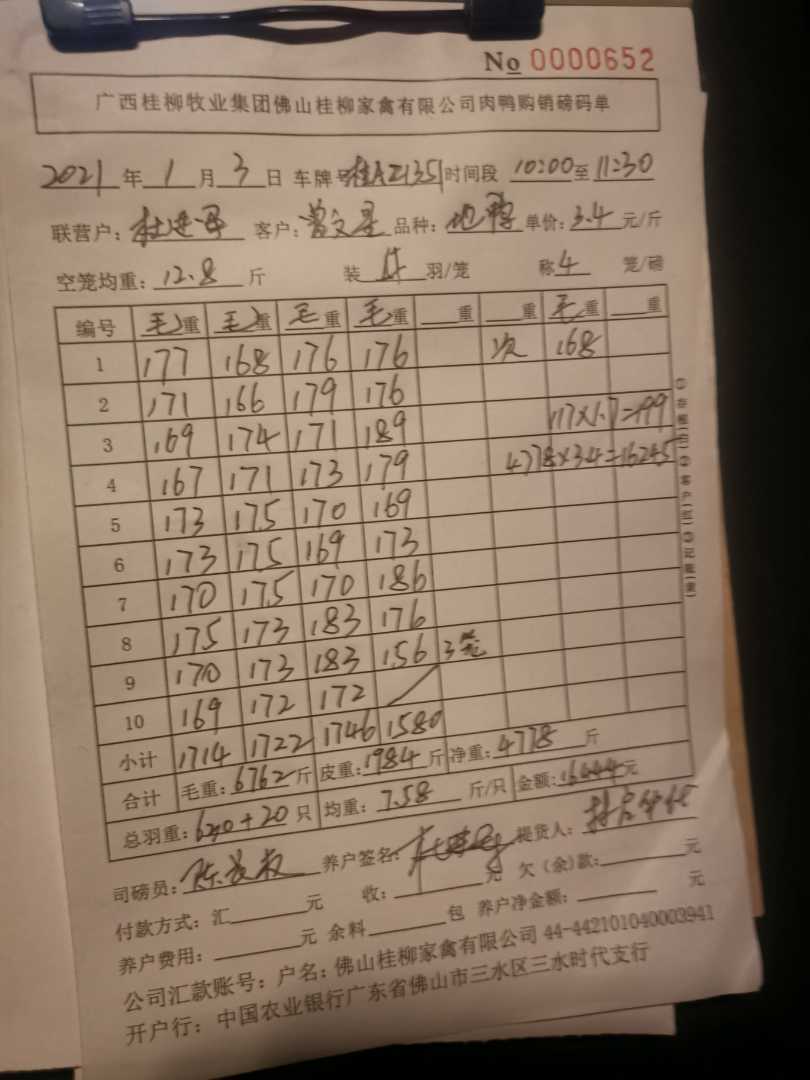 No 0000652
广西桂柳牧业集团佛山桂柳家禽有限公司肉鸭购销磅码单
2021年1月3日 车牌号桂AZ1351时间段 10:00至11:30
联营户: 客户:曾文星 品种: 单价:3.4元/斤
空笼均重:12.8斤 装4羽/笼 称4笼/磅
编号 毛重 毛重 毛重 毛重 重 重 毛重 重
1 177 168 176 176 次 168
2 171 166 179 176
3 169 174 171 189 117×1.7=199
4 167 171 173 179 4778×3.4=16245
5 173 175 170 169
6 173 175 169 173
7 170 175 170 186
8 175 173 183 176
9 170 173 183 156 3笼
10 169 172 172
小计 1714 1722 1746 1580
合计 毛重:6762斤 皮重:1984斤 净重:4778斤
总羽重:620+20只 均重:7.58斤/只 金额:16444元
司磅员: 养户签名: 提货人:
付款方式:汇 元 收: 元 欠(余)款: 元
养户费用: 元 余料 包 养户净金额: 元
公司汇款账号:户名:佛山桂柳家禽有限公司 44-442101040003941
开户行:中国农业银行广东省佛山市三水区三水时代支行
①存根(白)②客户(红)③记账(黄)